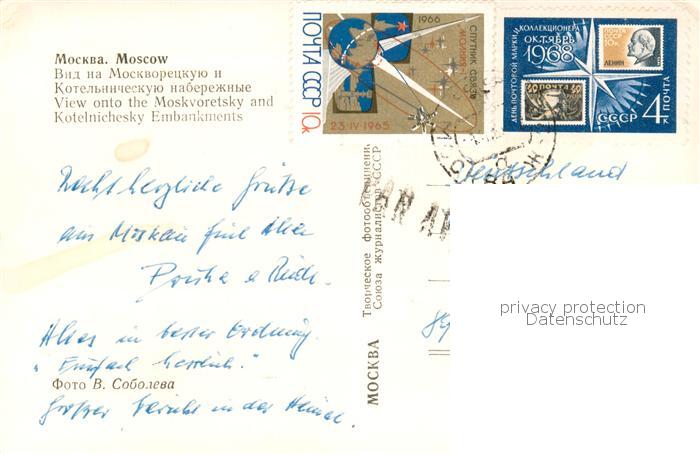 Москва. Moscow
Вид на Москворецкую и
Котельническую набережные
View onto the Moskvoretsky and
Kotelnichesky Embankments
ПОЧТА СССР 10К
1966
СПУТНИК СВЯЗИ
„МОЛНИЯ-1"
23.IV.1965
ДЕНЬ ПОЧТОВОЙ МАРКИ И
КОЛЛЕКЦИОНЕРА
ОКТЯБРЬ
1968
ПОЧТА
СССР
10К
ЛЕНИН
60 ПОЧТА 60
СССР
4К ПОЧТА
Deutschland
Recht herzliche Grüße
aus Moskau
Alles in bester Ordnung.
"Einfach herrlich."
Фото В. Соболева
Großer Bericht in der Heimat.
МОСКВА
Творческое фотообъединени
Союза журналистов СССР
privacy protection
Datenschutz